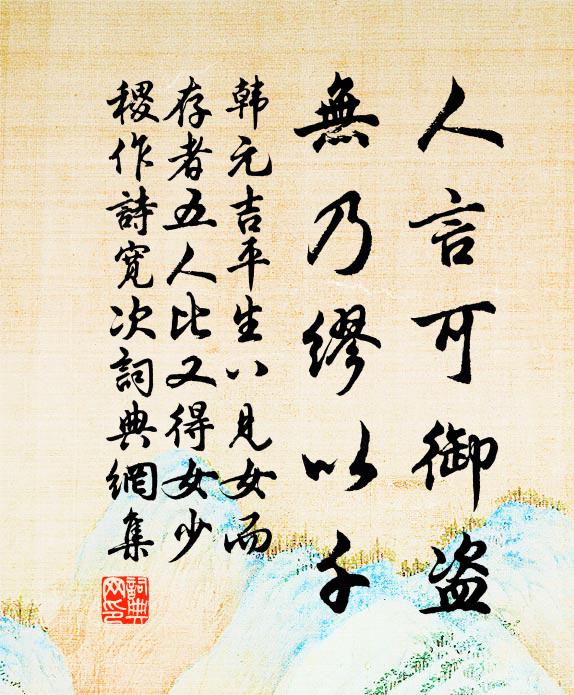 人言可御盗
無乃繆以千
韩元吉平生八見女而
存者五人比又得女少
稷作詩寬次詞典網集
詞典网印